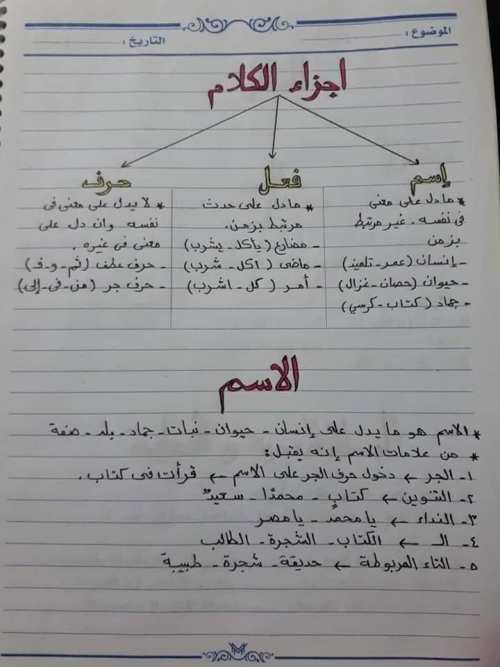 الموضوع :
التاريخ :
اجزاء الكلام
إسم
* مادل على معنى
فى نفسه - غير مرتبط
بزمن
- إنسان (عمر - تلميذ)
- حيوان (حصان - غزال)
- جماد (كتاب - كرسي)
فعل
* مادل على حدث
مرتبط بزمن.
- مضارع (يأكل - يشرب)
- ماضى (اكل - شرب)
- أمر (كل - اشرب)
حرف
* لا يدل على معنى فى
نفسه وان دل على
معنى فى غيره.
- حرف عطف (ثم - و - ف)
- حرف جر (من - فى - إلى)
الاسم
* الاسم هو ما يدل على إنسان - حيوان - نبات - جماد - بلد - صفة
* من علامات الاسم إنه يقبل:
١- الجر ← دخول حرف الجر على الاسم ← قرأت فى كتاب.
٢- التنوين ← كتابٍ - محمدًا - سعيدٌ
٣- النداء ← يا محمد - يا مصر
٤- الـ ← الكتاب - الشجرة - الطالب
٥- التاء المربوطة ← حديقة - شجرة - طبيبة